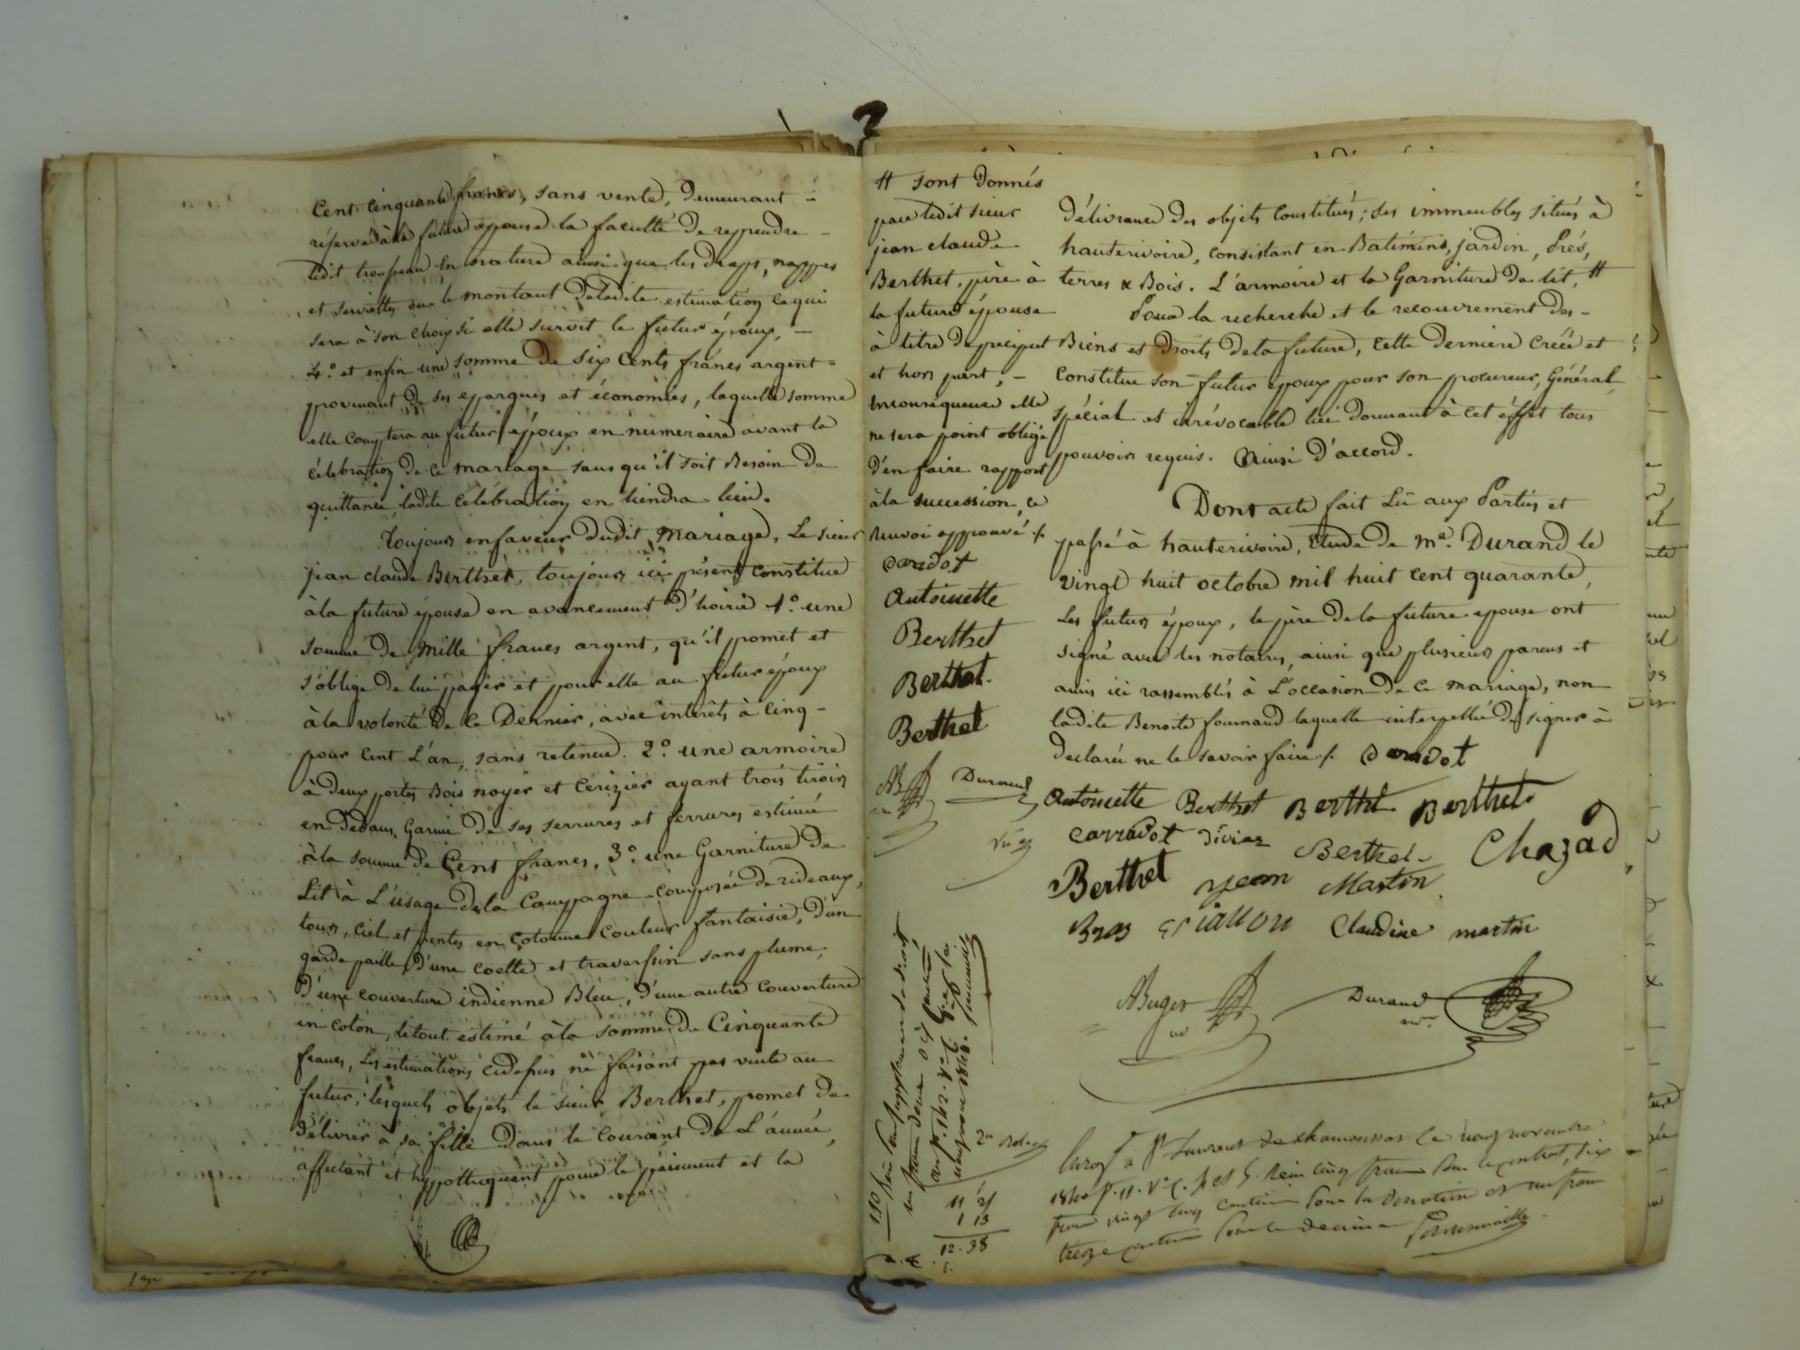 Cent cinquante francs, sans vente, demeurant -
réservé à la future épouse la faculté de reprendre -
ledit trousseau en nature ainsi que les draps, nappes
et serviettes ou le montant de ladite estimation ce qui
sera à son choix si elle survit le futur époux, -
4.° et enfin une somme de six cents francs argent -
provenant de ses epargnes et économies, laquelle somme
elle comptera au futur époux en numeraire avant la
célébration de ce mariage sans qu'il soit Besoin de
quittance, ladite célébration en tiendra lieu.
Toujours en faveur dudit mariage, Le sieur
jean claude Berthet, toujours ici présent constitue
à la future épouse en avancement d'hoirie 1.° une
somme de mille francs argent, qu'il promet et
s'oblige de lui payer et pour elle au futur époux
à la volonté de ce Dernier, avec intérêts à cinq -
pour cent L'an, sans retenue. 2.° une armoire
à deux portes Bois noyer et cerizier ayant trois tiroirs
en dedans, Garnie de ses serrures et ferrures estimée
à la somme de Cent francs, 3.° une Garniture de
Lit à L'usage de la Campagne composée de rideaux,
tours, ciel et pentes en cotonne couleur fantaisie, d'un
garde paille, d'une coette et traversin sans plume,
d'une couverture indienne Bleu, d'une autre couverture
en coton, le tout estimé à la somme de Cinquante
francs, Les estimations cidessus ne faisant pas vente au
futur; lesquels objets le sieur Berthet, promet de
délivrer à sa fille dans le courant de L'année,
affectant et hypothequant pour le paiement et la
# sont Donnés
par ledit sieur
jean claude
Berthet, père à
la future épouse
à titre de preciput
et hors part, -
inconséquence elle
ne sera point obligée
d'en faire rapport
à la succession, ce
renvoi approuvé ./.
Antoinette
Berthet
Berthet.
Berthet
Durand
délivrance des objets constitués; ses immeubles situés à
hauterivoire, consistant en Batimens, jardin, Prés,
terres & Bois. L'armoire et la Garniture de lit, #
Pour la recherche et le recouvrement des -
Biens et Droits de la future, cette derniere créée et
constitue son futur époux pour son procureur, Général
spécial et irrévocable lui donnant à cet éffet tous
pouvoirs requis. Ainsi d'accord.
Dont acte fait Lû aux Parties et
passé à hauterivoire, Etude de m.e Durand le
vingt huit octobre mil huit cent quarante,
Les futurs époux, le père de la future epouse ont
signé avec les notaires, ainsi que plusieurs parens et
amis ici rassemblés à L'occasion de ce mariage, non
ladite Benoite fournaud laquelle interpellée de signer à
declarée ne le savoir faire ./.
Antoinette Berthet Berthet Berthet
Berthet Chazad
Berthet jean Martin
Claudine martin
Durand
11 25
1 13
12.38